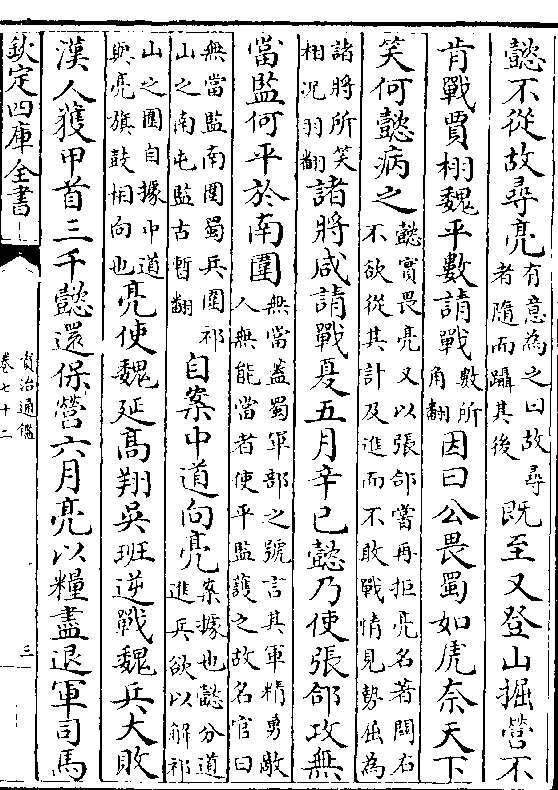 懿不從故尋亮有意為之曰故尋者隨而躡其後既至又登山掘營不
肯戰賈栩魏平數請戰數所角翻因曰公畏蜀如虎奈天下
笑何懿病之懿實畏亮又以張郃嘗再拒亮名著關右不欲從其計及進而不敢戰情見勢屈為
諸將所笑相況羽翻諸將咸請戰夏五月辛巳懿乃使張郃攻無
當監何平於南圍無當蓋蜀軍部之號言其軍精勇敵人無能當者使平監護之故名官曰
無當監南圍蜀兵圍祁山之南屯監古暫翻自案中道向亮案據也懿分道進兵欲以解祁
山之圍自據中道與亮旗鼓相向也亮使魏延高翔吳班逆戰魏兵大敗
漢人獲甲首三千懿還保營六月亮以糧盡退軍司馬
欽定四庫全書
資治通鑑
卷七十二
三